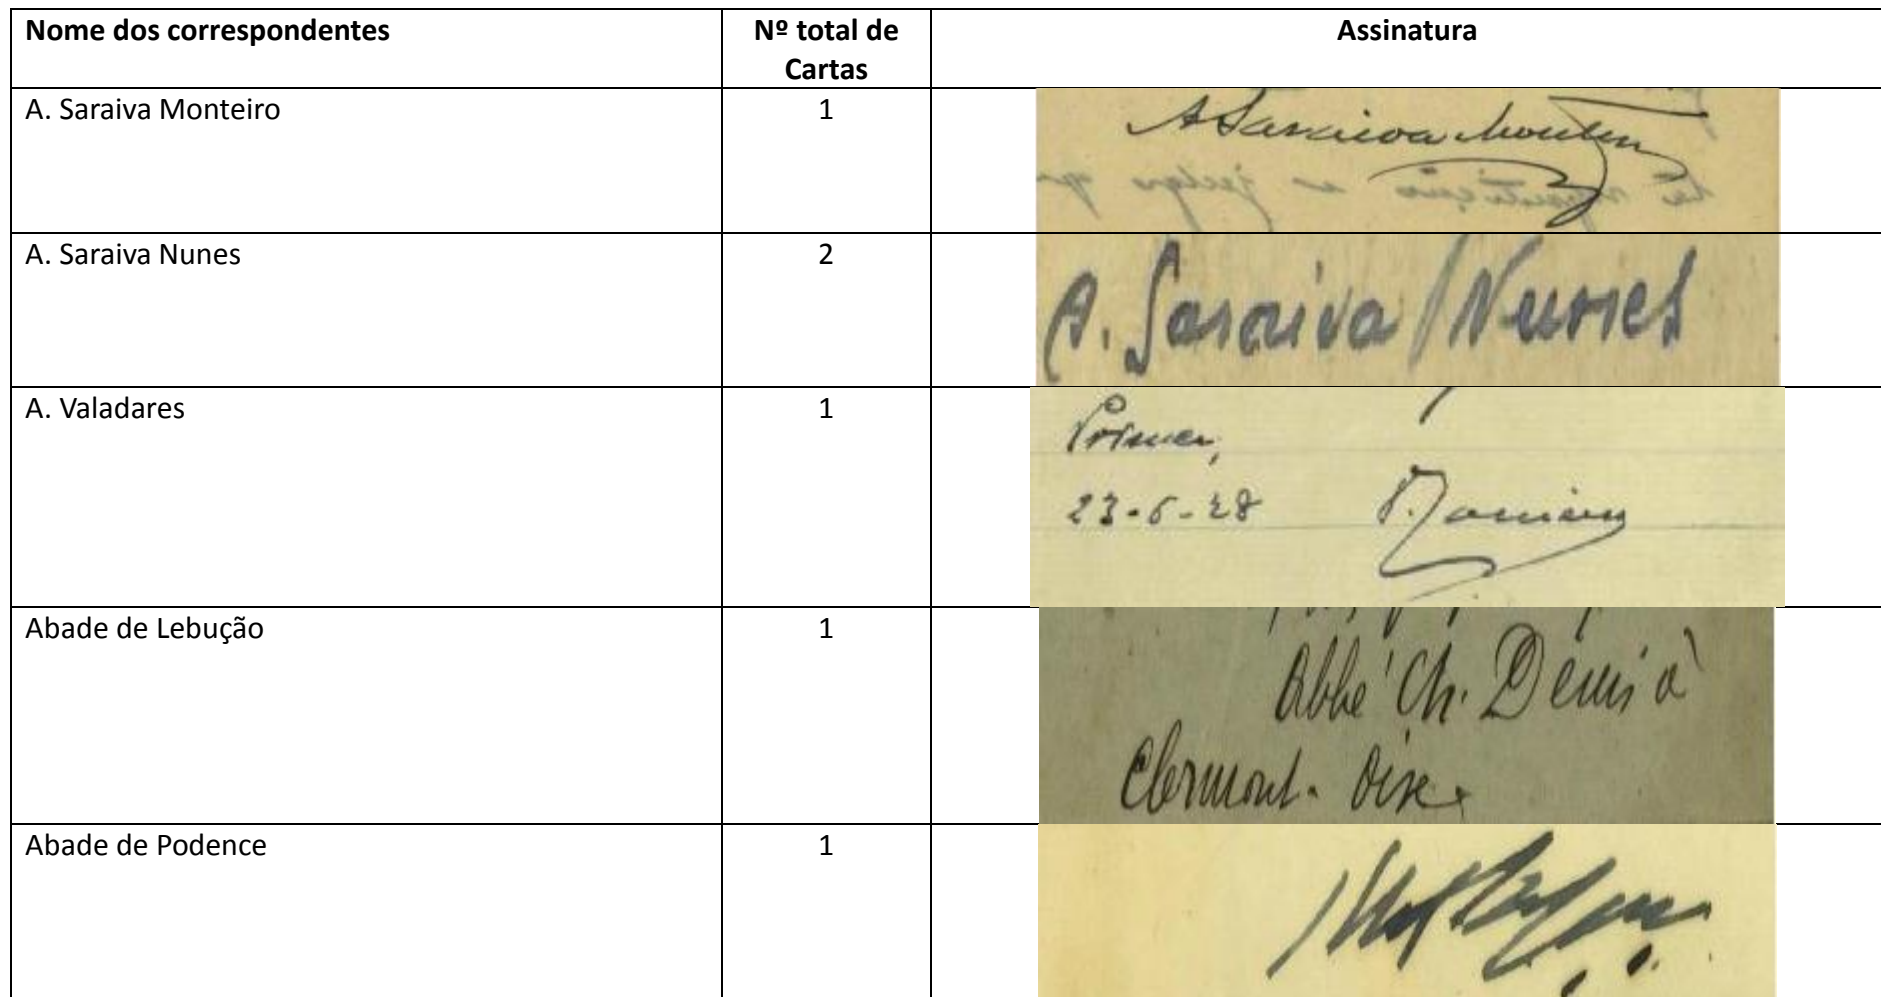 Nome dos correspondentes
Nº total de Cartas
Assinatura
A. Saraiva Monteiro
1
A Saraiva Monteiro
A. Saraiva Nunes
2
A. Saraiva Nunes
A. Valadares
1
23-6-28
Abade de Lebução
1
Abbé Ch. Denis à
Clermont. Oise
Abade de Podence
1